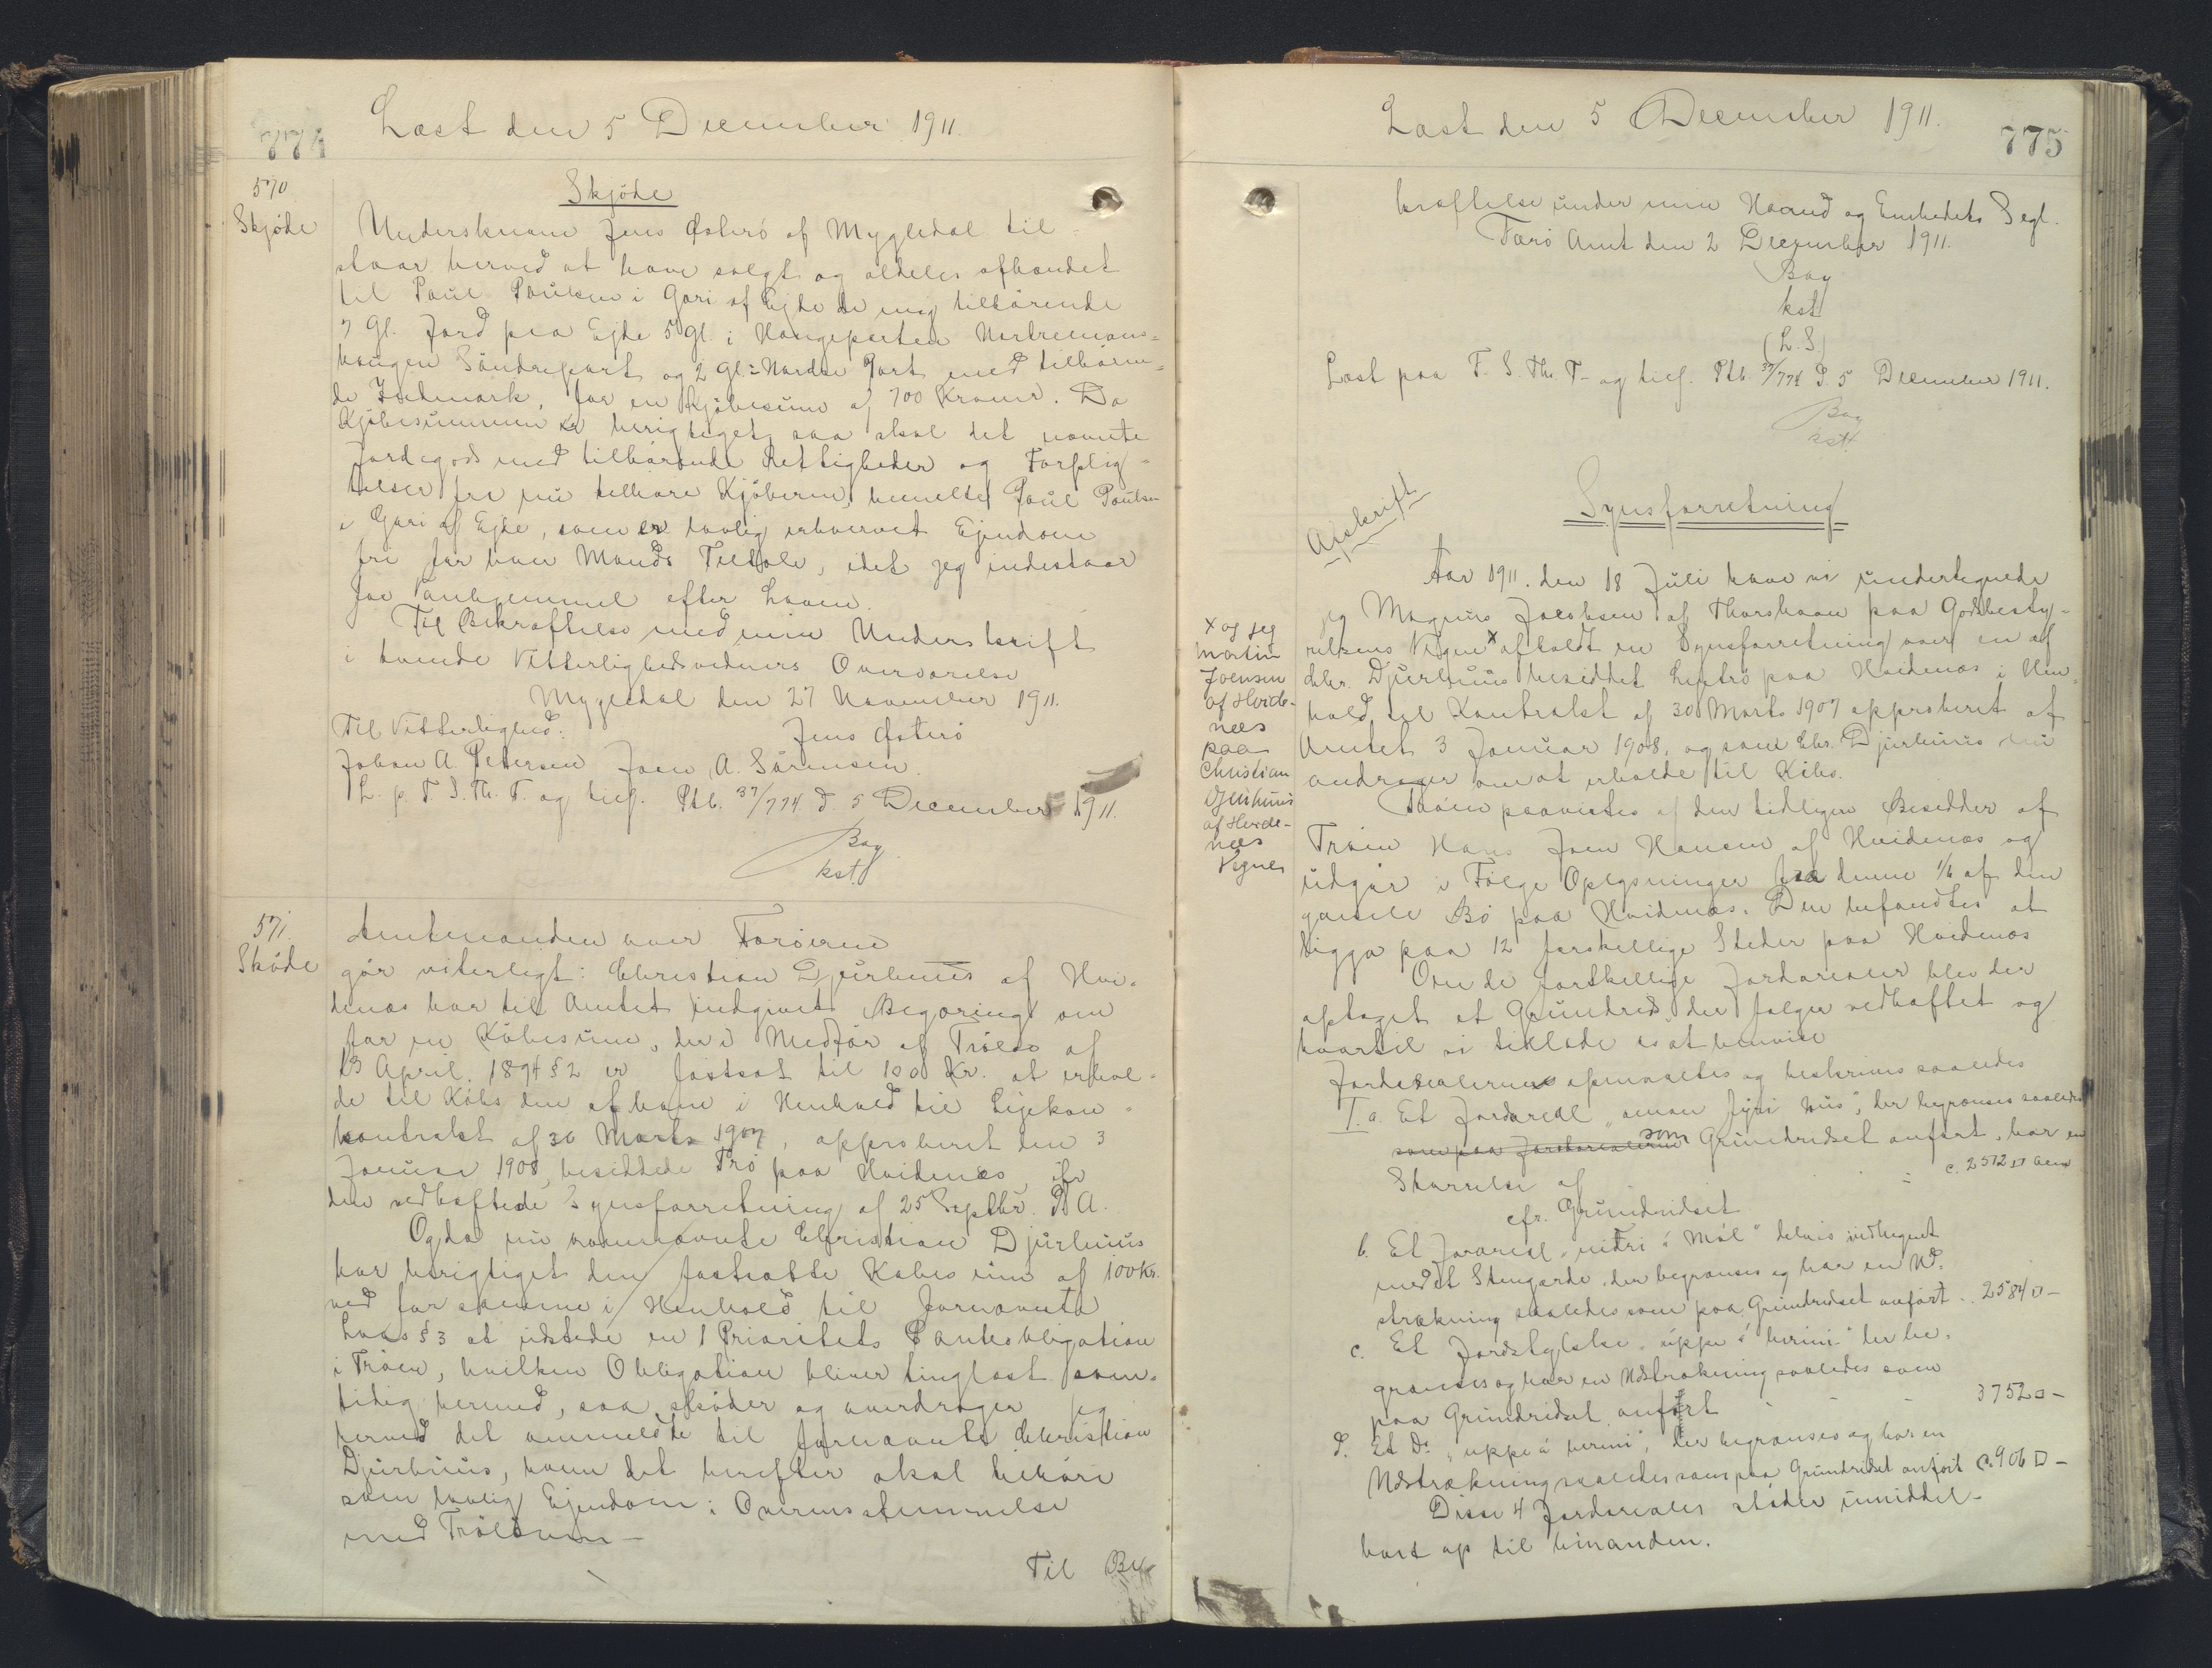 774
Læst den 5 December 1911.
570
Skjøde
Skjøde
Underskrevne Jens Østerö af Mygledal til-
staar herved at have solgt og aldeles afhændet
til Poul Poulsen i Gøri af Ejde de mig tilhørende
7 Gl. Jord paa Ejde 5 Gl. i Haugeparten
haugen Söndrepart og 2 Gl. i Nordre Part med tilhøren-
de Indmark, for en Kjöbesum af 700 Kroner. Da
Kjöbesummen er berigtiget, saa skal det nævnte
Jordegods med tilhørende Rettigheder og Forplig-
telser fra nu tilhøre Kjöberen, bemeldte Poul Poulsen
i Gøri af Ejde, som en lovlig erhvervet Ejendom
fri for hver Mands Tiltale, idet jeg indestaar
for Vanhjemmel efter Loven.
Til Bekræftelse med min Underskrift
i tvende Vitterlighedsvidners Overværelse
Mygledal den 27 November 1911.
Til Vitterlighed:
Jens Østerö
Johan A. Petersen Joen A. Sörensen.
L. p. F. S. Th. T. og tilf. Ptb. 37/774 d. 5 December 1911.
Bay
kst.
571.
Sköde
Amtmanden over Færöerne
gör viterligt: Christian Djurhuus af Hvi-
denæs har til Amtet indgivet Begæring om
for en Köbesum, der i Medför af Trölov af
13 April 1894 § 2 er fastsat til 100 Kr. at erhol-
de til Köbs den af ham i Henhold til Lejekon-
kontrakt af 30 Marts 1907, approberet den 3
Januar 1908, besiddede Trö paa Hvidenæs, jfr
den vedhæftede Synsforretning af 25 Septbr. d. A.
Og da nu ovennævnte Christian Djurhuus
har berigtiget den fastsatte Köbesum af 100 Kr.
ved for samme i Henhold til fornævnte
Lovs § 3 at udstede en 1 Prioritets Panteobligation
i Tröen, hvilken Obligation bliver tinglæst sam-
tidig hermed, saa sköder og overdrager jeg
herved det ommeldte til fornævnte Christian
Djurhuus, hvem det herefter skal tilhöre
som lovlig Ejendom i Overensstemmelse
med Trölovens —
Til Be-
Læst den 5 December 1911.
775
kræftelse under min Haand og Embedets Segl.
Færö Amt den 2 December 1911.
Bay
kst
(L. S.)
Læst paa F. S. Th. T. og tilf. Ptb. 37/774 d. 5 December 1911.
Bay
kst.
Afskrift
Synsforretning
Aar 1911. den 18 Juli have vi undertegnede
jeg Magnus Jacobsen af Thorshavn paa Godsbesty-
relsens Vegne x afholdt en Synsforretning over en af
Chr. Djurhuus besiddet Lejetrö paa Hvidenæs i Hen-
hold til Kontrakt af 30 Marts 1907 approberet af
Amtet 3 Januar 1908, og som Chr. Djurhuus nu
andrager om at erholde til Köbs.
x og jeg
Martin
Joensen
af Hvide-
næs
paa
Christian
Djurhuus
af Hvide-
næs
Vegne
Tröen paavistes af den tidligere Besidder af
Tröen Hans Joen Hansen af Hvidenæs og
udgör i Fölge Oplysninger fra denne 1/6 af den
gamle Bö paa Hvidenæs. Den befandtes at
ligge paa 12 forskellige Steder paa Hvidenæs
Over de forskellige Jordarealer blev der
optaget et Grundrids, der fölger vedhæftet og
hvortil vi tillade os at henvise
Jordarealerne opmaaltes og beskrives saaledes
I. a. Et Jordareal „oman fyri hús", der begrænses saaledes
som Grundridset anfört, har en
Störrelse af
c. 2512 □ Alen
cfr. Grundridset
b. Et Jorareal „niðri á Mól" delvis indhegnet
med et Stengærde, der begrænses og har en Ud-
strækning saaledes som paa Grundridset anfört . 2584 □ —
c. Et Jordstykke „uppi á beruni" der be-
grænses og har en Udstrækning saaledes som
paa Grundridset anfört - - 3752 □ —
d. Et Do. „uppi á beruni", der begrænses og har en
Udstrækning saaledes som paa Grundridset anfört c. 906 □ —
Disse 4 Jordarealer stöder umiddel-
bart op til hinanden.